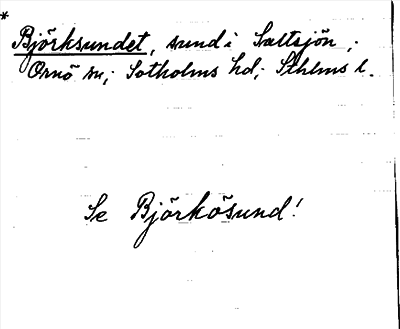 *
Björksundet, sund i Saltsjön;
Ornö sn; Sotholms hd; Sthlms l.
Se Björkösund!